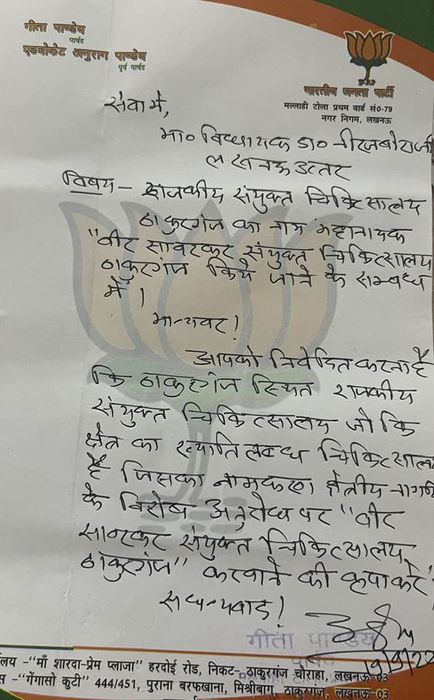 गीता पाण्डेय
पार्षद
एडवोकेट अनुराग पाण्डेय
पूर्व पार्षद
भारतीय जनता पार्टी
मल्लाही टोला प्रथम वार्ड सं0-79
नगर निगम, लखनऊ
सेवा में,
मा० विधायक डा० नीरज बोरा जी
लखनऊ उत्तर
विषय - राजकीय संयुक्त चिकित्सालय
ठाकुरगंज का नाम महानायक
"वीर सावरकर संयुक्त चिकित्सालय
ठाकुरगंज किये जाने के सम्बन्ध
में।
मान्यवर!
आपको निवेदित करना है
कि ठाकुरगंज स्थित राजकीय
संयुक्त चिकित्सालय जो कि
क्षेत्र का ख्याति लब्ध चिकित्साल
है जिसका नामकरण क्षेत्रीय नागरि
के विशेष अनुरोध पर "वीर
सावरकर संयुक्त चिकित्सालय,
ठाकुरगंज" करवाने की कृपा करें
सधन्यवाद!
गीता पाण्डेय
19/9/22
लय -"माँ शारदा-प्रेम प्लाजा" हरदोई रोड, निकट-ठाकुरगंज चौराहा, लखनऊ-03
स -"गेंगासो कुटी" 444/451, पुराना बरफखाना, मिश्रीबाग, ठाकुरगंज, लखनऊ-03